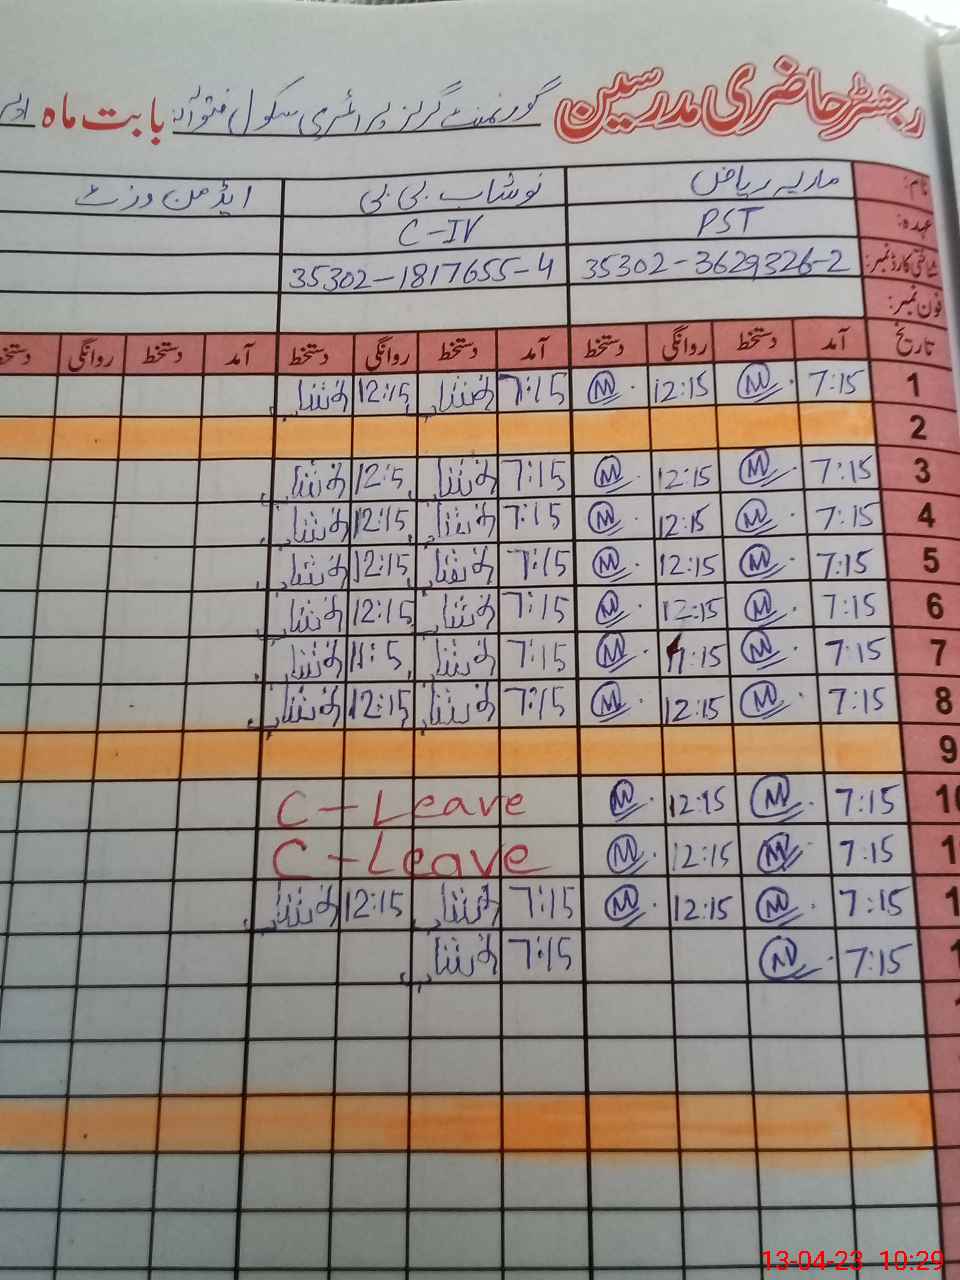 رجسٹر حاضری مدرسین گورنمنٹ گرلز پرائمری سکول بابت ماہ
نام: ماریہ ریاض نوشاب بی بی ایڈمن وزٹ
عہدہ: PST C-IV
شناختی کارڈ نمبر: 35302-3629326-2 35302-1817655-4
فون نمبر:
تاریخ آمد دستخط روانگی دستخط آمد دستخط روانگی دستخط آمد دستخط روانگی دستخط
1 7:15 M 12:15 M 7:15 12:15
2
3 7:15 M 12:15 M 7:15 12:5
4 7:15 M 12:15 M 7:15 12:15
5 7:15 M 12:15 M 7:15 12:15
6 7:15 M 12:15 M 7:15 12:15
7 7:15 M 11:15 M 7:15 11:5
8 7:15 M 12:15 M 7:15 12:15
9
10 7:15 M 12:15 M C-Leave
1 7:15 M 12:15 M C-Leave
1 7:15 M 12:15 M 7:15 12:15
1 7:15 M 7:15
13-04-23 10:29